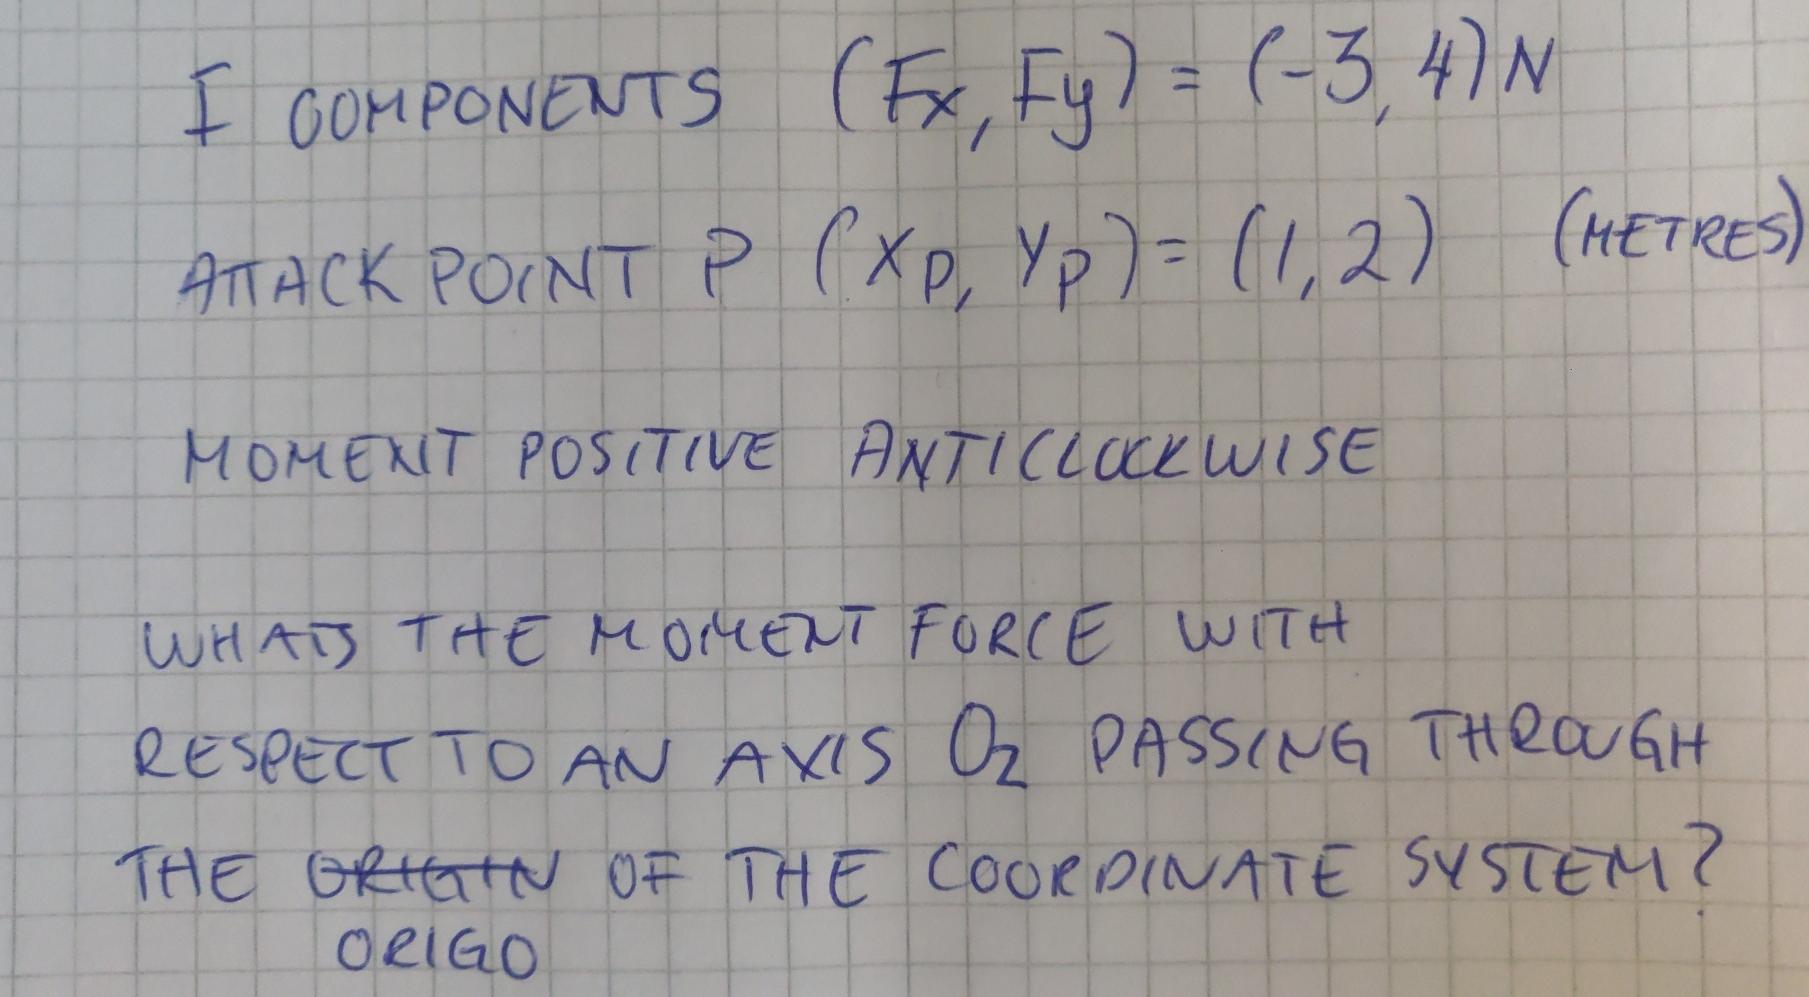 F COMPONENTS (Fx, Fy) = (-3, 4) N
ATTACK POINT P (XP, YP) = (1, 2) (METRES)
MOMENT POSITIVE ANTICLOCKWISE
WHATS THE MOMENT FORCE WITH
RESPECT TO AN AXIS Oz PASSING THROUGH
THE ORIGIN OF THE COORDINATE SYSTEM?
ORIGO